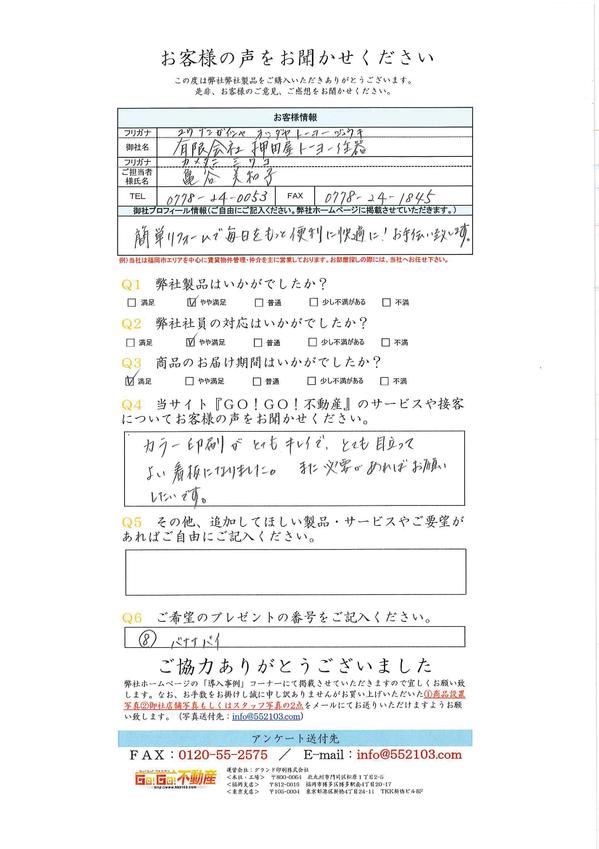 お客様の声をお聞かせください
この度は弊社弊社製品をご購入いただきありがとうございます。
是非、お客様のご意見、ご感想をお聞かせください。
お客様情報
フリガナ
御社名 有限会社 押田屋トーヨー住器
フリガナ カメタニ ミワコ
ご担当者様氏名 亀谷 美和子
TEL 0778-24-0053 FAX 0778-24-1845
御社プロフィール情報(ご自由にご記入ください。弊社ホームページに掲載させていただきます。)
簡単リフォームで毎日をもっと便利に快適に!お手伝い致します。
例)当社は福岡市エリアを中心に賃貸物件管理・仲介を主に営業しております。お部屋探しの際には、当社へお任せ下さい。
Q1 弊社製品はいかがでしたか?
□ 満足 ☑ やや満足 □ 普通 □ 少し不満がある □ 不満
Q2 弊社社員の対応はいかがでしたか?
□ 満足 ☑ やや満足 □ 普通 □ 少し不満がある □ 不満
Q3 商品のお届け期間はいかがでしたか?
☑ 満足 □ やや満足 □ 普通 □ 少し不満がある □ 不満
Q4 当サイト『GO!GO!不動産』のサービスや接客
についてお客様の声をお聞かせください。
カラー印刷がとてもキレイで、とても目立って
よい看板になりました。 また必要があればお願い
したいです。
Q5 その他、追加してほしい製品・サービスやご要望が
あればご自由にご記入ください。
Q6 ご希望のプレゼントの番号をご記入ください。
⑧ バナナパイ
ご協力ありがとうございました
弊社ホームページの「導入事例」コーナーにて掲載させていただきますので宜しくお願い致
します。なお、お手数をお掛けし誠に申し訳ありませんがお買い上げいただいた①商品設置
写真②御社店舗写真もしくはスタッフ写真の2点をメールにてお送りいただけますようお願
い致します。(写真送付先:info@552103.com)
アンケート送付先
FAX:0120-55-2575 / E-mail:info@552103.com
GO!GO!不動産
http://www.552103.com
運営会社:グランド印刷株式会社
<本社・工場> 〒800-0064 北九州市門司区松原1丁目2-5
<福岡支店> 〒812-0016 福岡市博多区博多駅南4丁目7-20
<東京支店> 〒105-0004 東京都港区新橋4丁目24-11 TKK新橋ビル8F